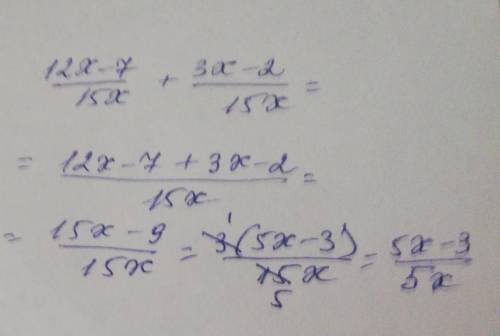 (12x-7)/(15x) + (3x-2)/(15x) =
= (12x-7+3x-2)/(15x) =
= (15x-9)/(15x) = (3(5x-3))/(15x) = (5x-3)/(5x)